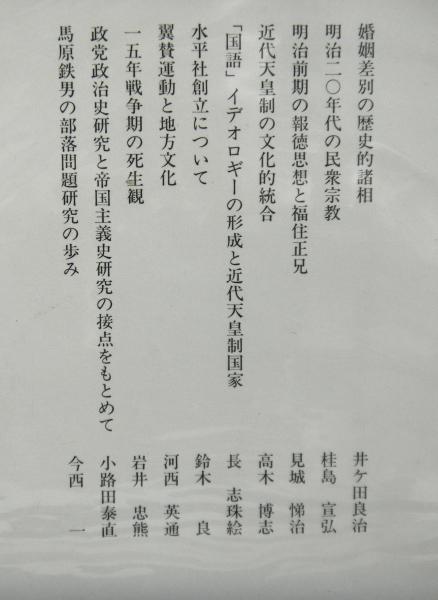 婚姻差別の歴史的諸相 井ケ田良治
明治二〇年代の民衆宗教 桂島宣弘
明治前期の報徳思想と福住正兄 見城悌治
近代天皇制の文化的統合 高木博志
「国語」イデオロギーの形成と近代天皇制国家 長志珠絵
水平社創立について 鈴木良
翼賛運動と地方文化 河西英通
一五年戦争期の死生観 岩井忠熊
政党政治史研究と帝国主義史研究の接点をもとめて 小路田泰直
馬原鉄男の部落問題研究の歩み 今西一